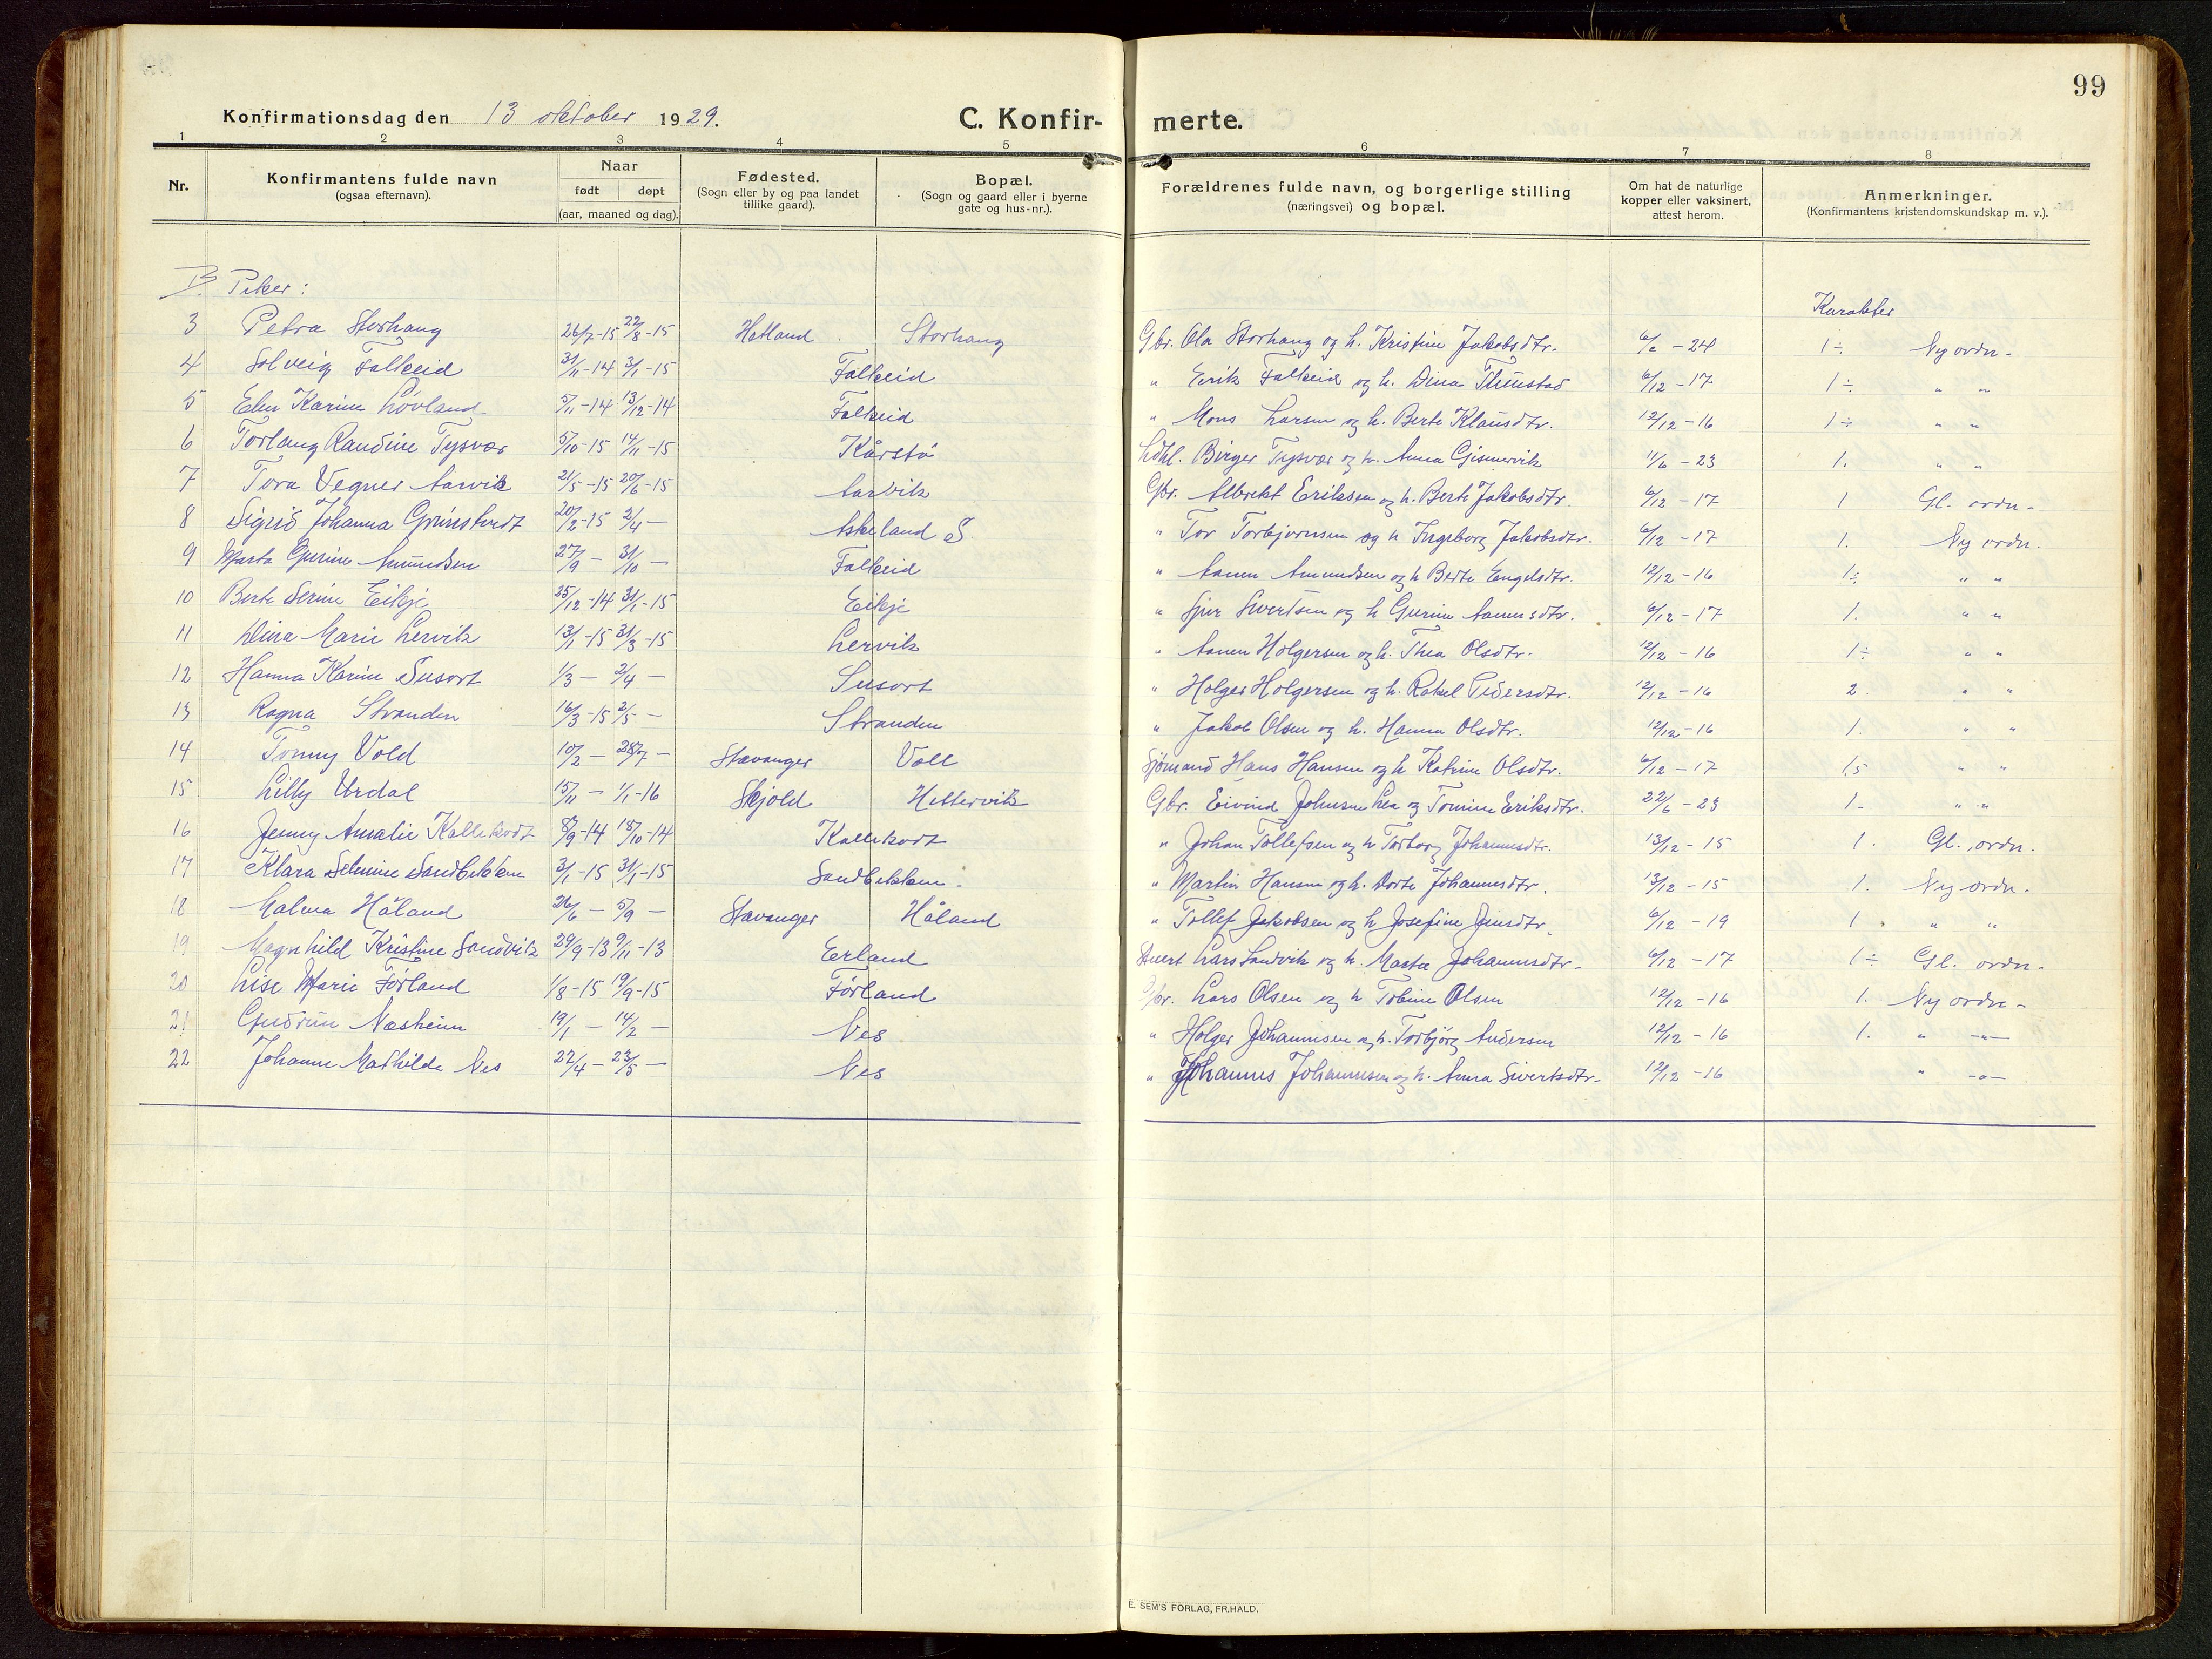 99
Konfirmationsdag den 13 oktober 1929.
C. Konfir- merte.
1 2 3 4 5 6 7 8
Nr.
Konfirmantens fulde navn
(ogsaa efternavn).
Naar
født døpt
(aar, maaned og dag).
Fødested.
(Sogn eller by og paa landet
tillike gaard).
Bopæl.
(Sogn og gaard eller i byerne
gate og hus-nr.).
Forældrenes fulde navn, og borgerlige stilling
(næringsvei) og bopæl.
Om hat de naturlige
kopper eller vaksinert,
attest herom.
Anmerkninger.
(Konfirmantens kristendomskundskap m. v.).
B. Piker:
Karakter
3 Petra Storhaug 26/7-15 22/8-15 Hetland Storhaug Gbr. Ola Storhaug og h. Kristine Jakobsdtr. -24 1÷ Ny ordn-
4 Solveig Falkeid 31/11-14 3/1-15 Falkeid " Erik Falkeid og h. Dina 6/12-17 1÷ " "
5 Karine Løvland 5/11-14 13/12-14 Falkeid " Mons Larsen og h. Berte Klausdtr. 12/12-16 1÷ " "
6 Torlaug Randine Tysvær 5/10-15 14/11-15 Kårstø Birger Tysvær og h. Anna Gismervik 11/6-23 1. " "
7 Tora Vegner Aarvik 21/5-15 20/6-15 Aarvik Gbr. Albrekt Eriksen og h. Berte Jakobsdtr. 6/12-17 1 Gl. ordn-
8 Sigrid Johanna 20/2-15 2/4 — Askeland S " Tor Torbjørnsen og h Ingeborg Jakobsdtr. 6/12-17 1. Ny ordn.
9 Marta Gurine Amundsen 27/9 — 31/10 — Falkeid " Aanen Amundsen og h Berte Engelsdtr. 12/12-16 1÷ " "
10 Berte Serine Eikje 25/12-14 31/1-15 Eikje " Sjur Sivertsen og h Gurine Aanensdtr. 6/12-17 1. " "
11 Dina Marie Lervik 13/1-15 31/3-15 Lervik " Aanen Holgersen og h. Thea Olsdtr. 12/12-16 1÷ " "
12 Hanna Karine Susort 1/3 — 2/4 — Susort " Holger Holgersen og h. Rakel Pedersdtr. 12/12-16 2. " "
13 Ragna Stranden 16/3-15 2/5 — Stranden " Jakob Olsen og h. Hanna Olsdtr. 12/12-16 1. " "
14 Tonny Vold 10/2 — 28/7 — Stavanger Voll Sjømand Hans Hansen og h Katrine Olsdtr. 6/12-17 1,5 " "
15 Lilly Urdal 15/11 — 1/1-16 Skjold Hettervik Gbr. Eivind Johnsen Lea og Tomine Eriksdtr. 22/6-23 1- " "
16 Jenny Amalie Kallekodt 8/9-14 18/10-14 Kallekodt " Johan Tollefsen og h Torborg Johannesdtr. 13/12-15 1. Gl. ordn.
17 Klara Selmine Sandbekken 3/1-15 31/1-15 Sandbekken. " Martin Hansen og h. Dorte Johannesdtr. 13/12-15 1. Ny ordn.
18 Malena Håland 26/6 — 5/9 — Stavanger Håland " Tollef Jakobsen og h Josefine Jensdtr. 6/12-19 1. " "
19 Magnhild Kristine Sandvik 29/9-13 9/11-13 Erland Lars Sandvik og h. Marta Johannesdtr- 6/12-17 1÷ Gl. ordn.
20 Lise Marie Førland 1/8-15 19/9-15 Førland Gbr. Lars Olsen og h Tobine Olsen 12/12-16 1. Ny ordn-
21 Gudrun Næsheim 19/1 — 14/2 — Nes " Holger Johannesen og h. Torbjørg Andersen 12/12-16 1. " -"-
22 Johanne Mathilde Nes 22/4 — 23/5 — Nes " Johannes Johannesen og h. Anna Sivertsdtr- 12/12-16 " -"-
E. SEM'S FORLAG, FR.HALD.